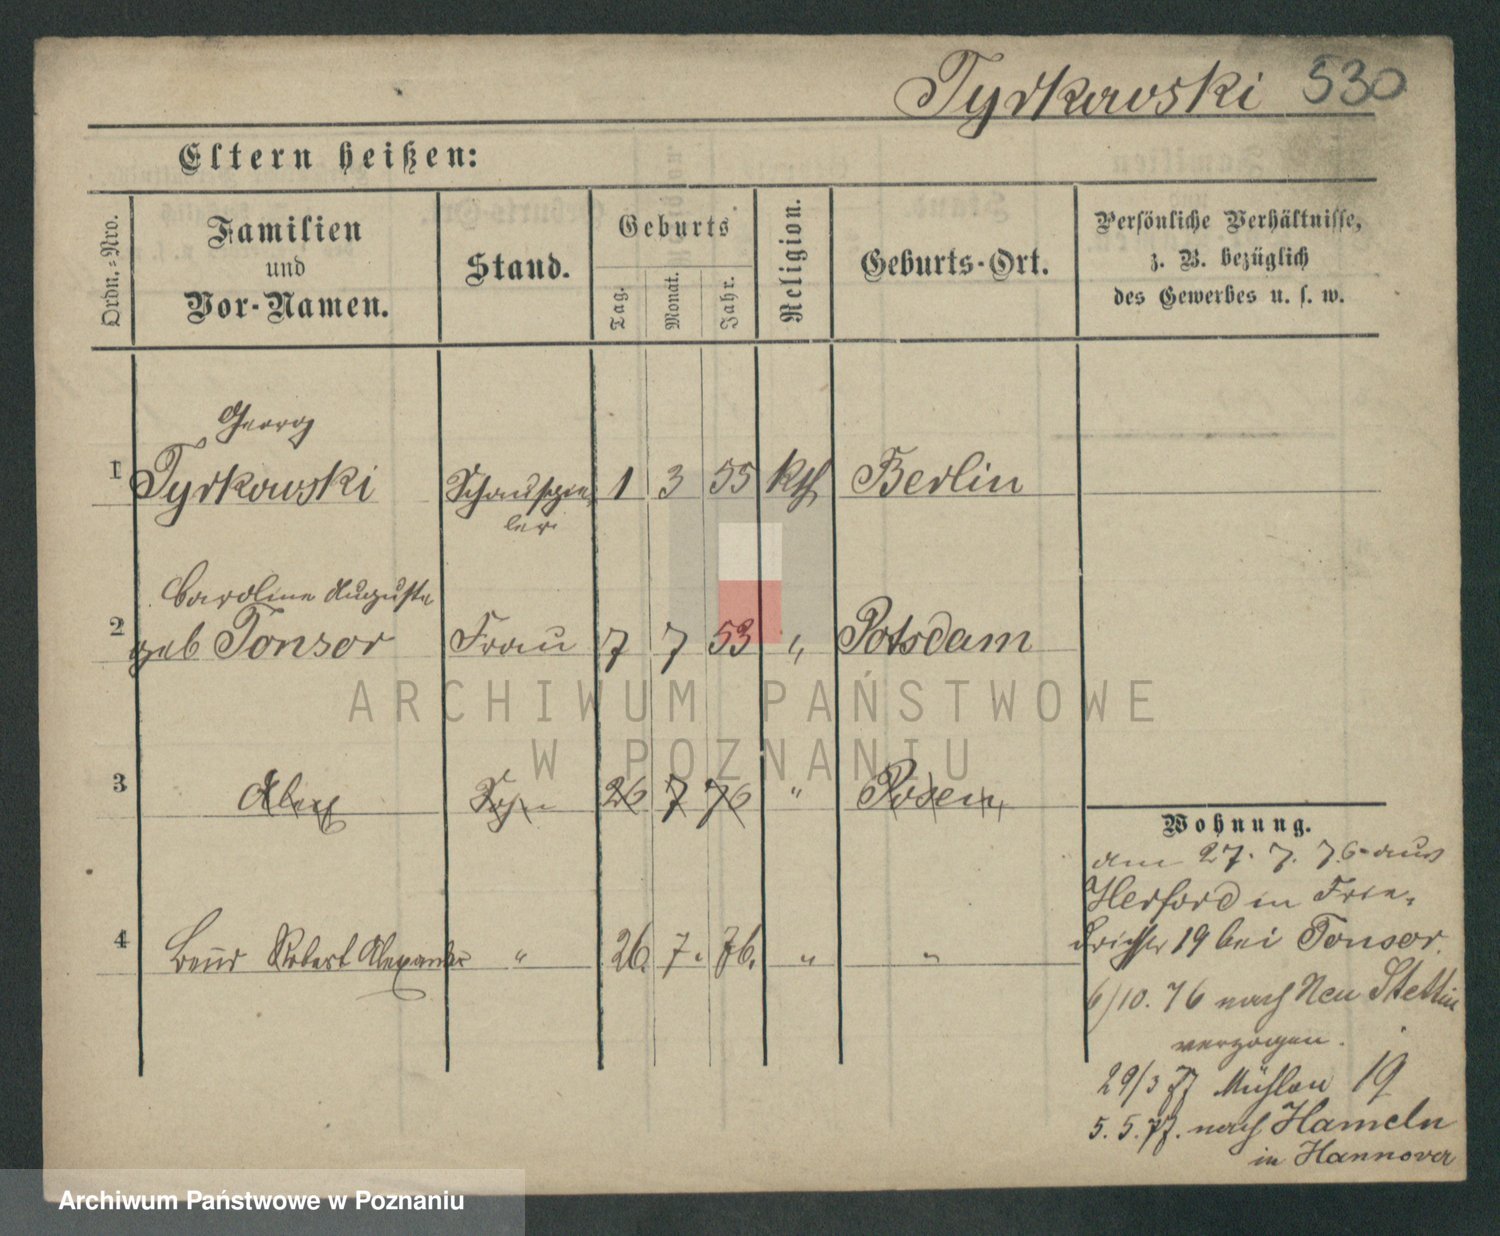 Tyrkowski 530
Eltern heißen:
Ordn.=Nro.
Familien
und
Vor-Namen.
Stand.
Geburts
Tag.
Monat.
Jahr.
Religion.
Geburts-Ort.
Persönliche Verhältnisse,
z. B. bezüglich
des Gewerbes u. s. w.
Georg
1 Tyrkowski Schauspie 1 3 55 kth Berlin
ler
Caroline Auguste
2 geb Tonsor Frau 7 7 53 " Potsdam
ARCHIWUM PAŃSTWOWE
W POZNANIU
3 Alex Sohn 26 7 76 " Posen
Wohnung.
am 27. 7. 76 aus
Herford in Frie-
drichstr 19 bei Tonsor.
4 Robert Alexander " 26. 7. 76. " "
6/10. 76 nach Neu Stettin
verzogen.
29/3 77 Mühlen 19
5. 5. 77. nach Hameln
in Hannover
Archiwum Państwowe w Poznaniu